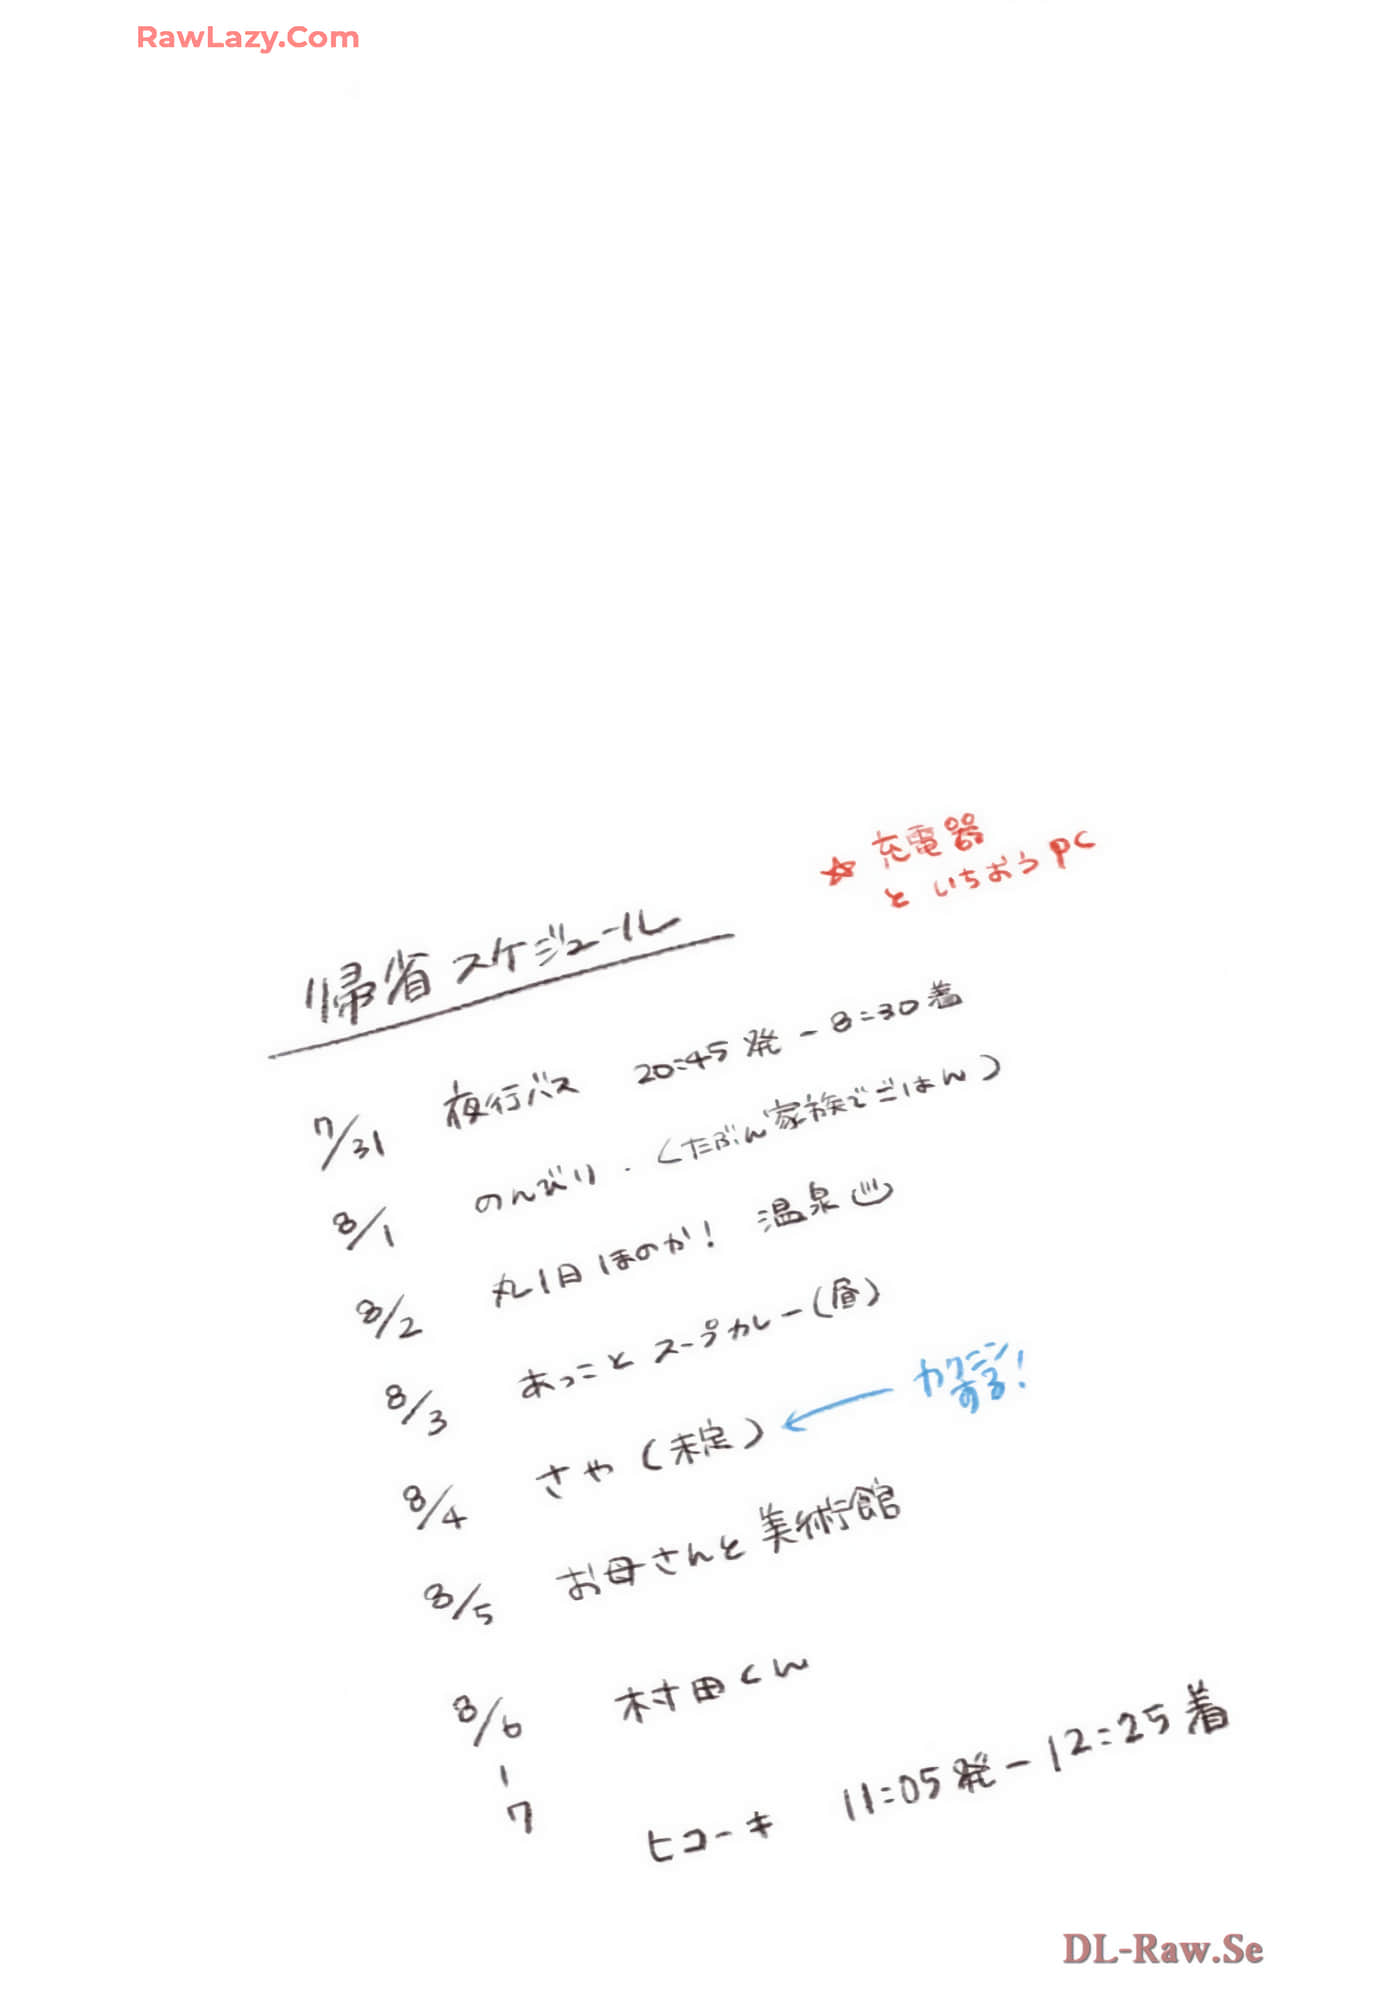 RawLazy.Com
☆ 充電器
と いちおうPC
帰省スケジュール
7/31 夜行バス 20:45発 - 8:30着
8/1 のんびり.(たぶん家族でごはん)
8/2 丸1日ほのか! 温泉♨
8/3 あっことスープカレー(昼)
8/4 さや(未定) ← カクニンする!
8/5 お母さんと美術館
8/6 村田くん
|
7 ヒコーキ 11:05発 - 12:25着
DL-Raw.Se